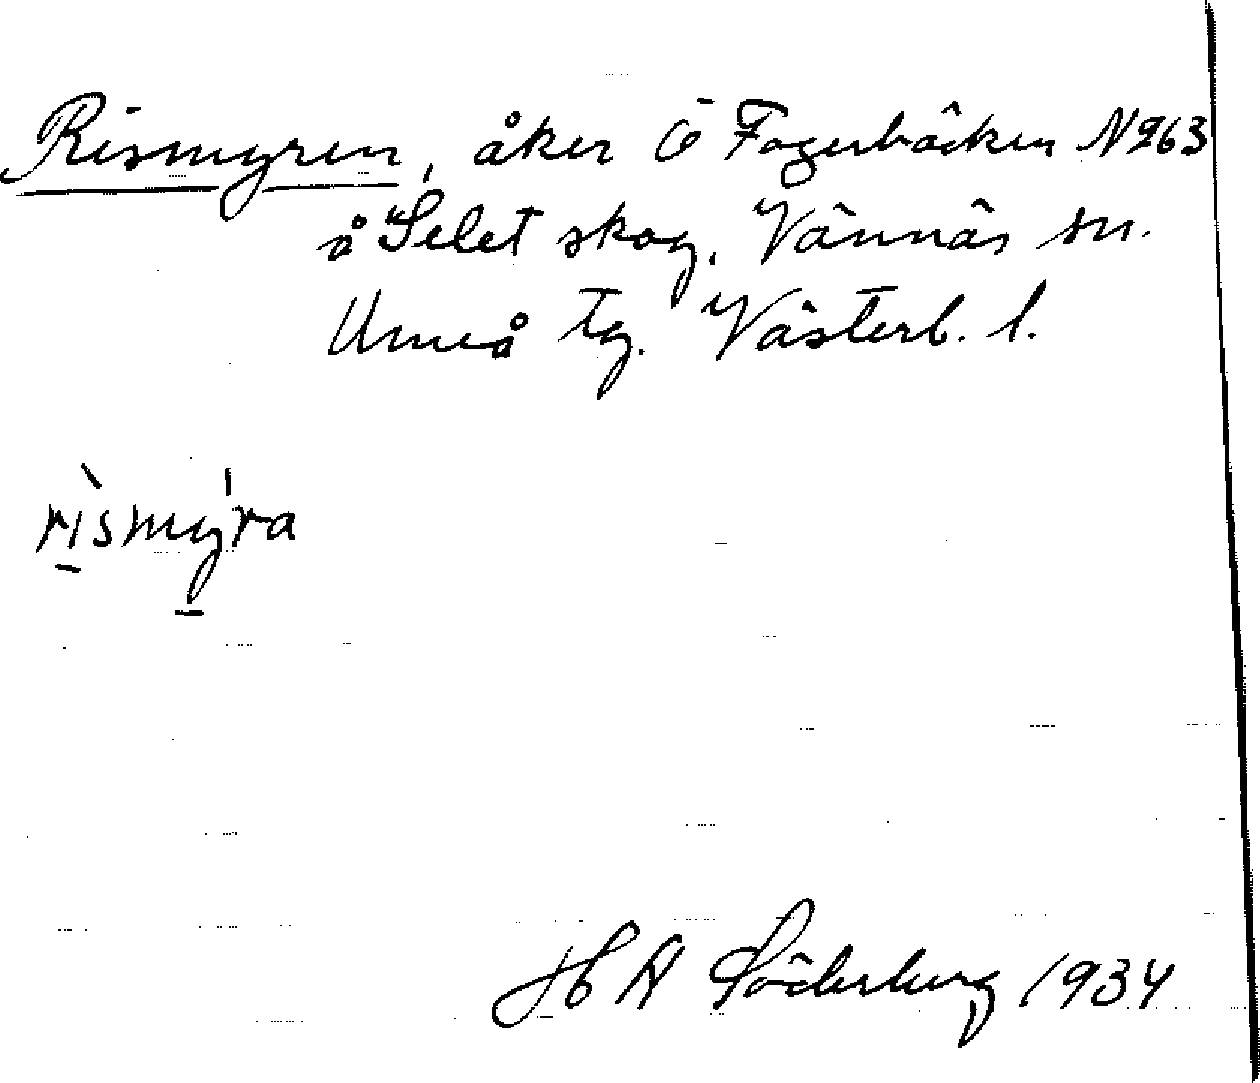 Rismyren, åker Ö Fagerbäcken N263
å Selet skog. Vännäs sn.
Umeå tg. Västerb. l.
rìsmy̍ra
H A Söderberg 1934